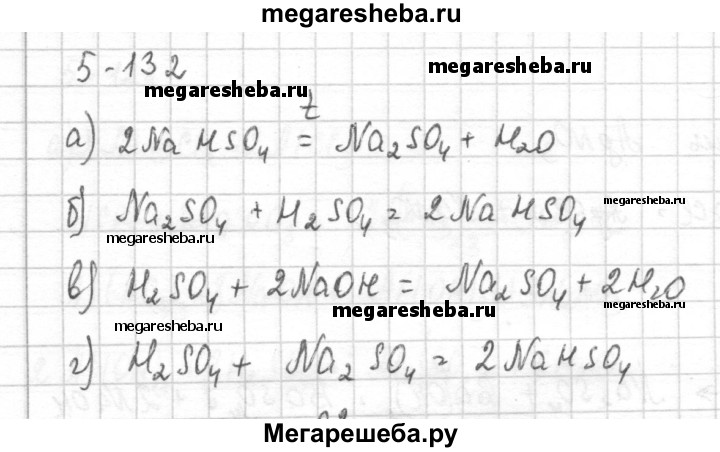 megaresheba.ru
5-132
megaresheba.ru
megaresheba.ru
t
а) 2NaHSO₄ = Na₂SO₄ + H₂O
б) Na₂SO₄ + H₂SO₄ = 2NaHSO₄
megaresheba.ru
megaresheba.ru
в) H₂SO₄ + 2NaOH = Na₂SO₄ + 2H₂O
megaresheba.ru
megaresheba.ru
megaresheba.ru
г) H₂SO₄ + Na₂SO₄ = 2NaHSO₄
Мегарешеба.ру